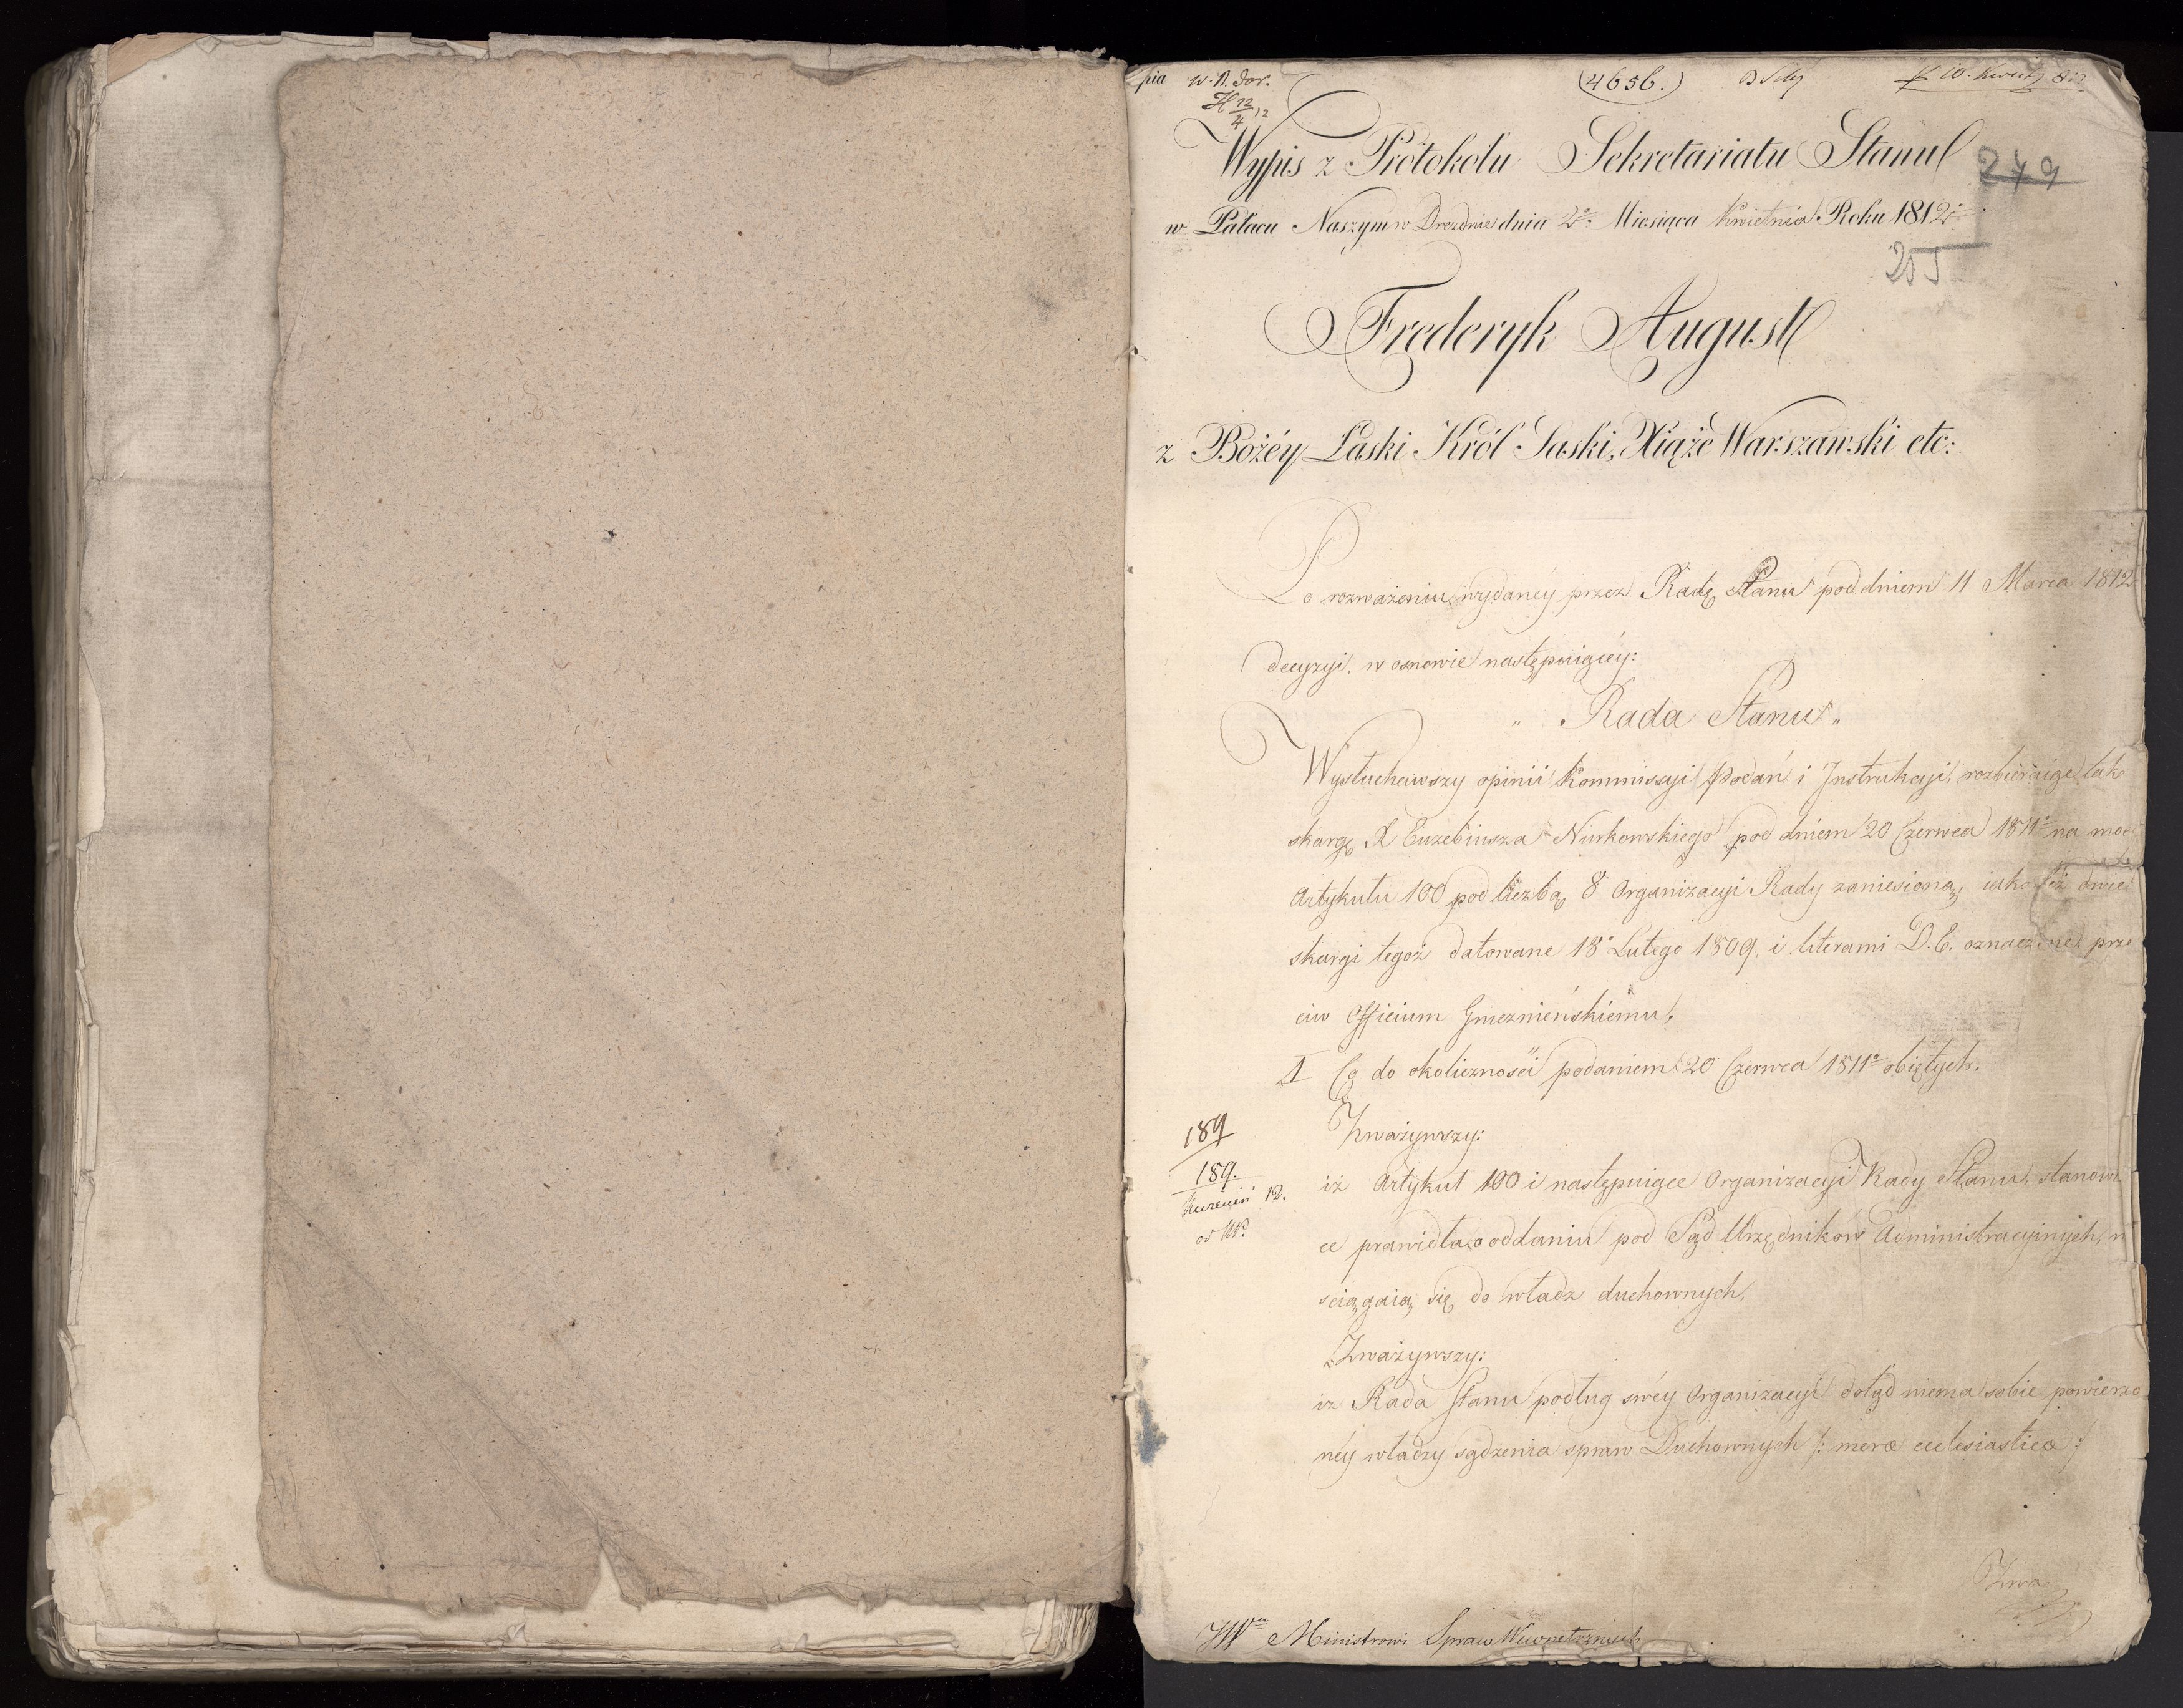 pia w. R. Dor. (4656.)
H 12/4 12
Wypis z Protokołu Sekretariatu Stanu
279
w Pałacu Naszym w Dreznie dnia 2o. Miesiąca Kwietnia Roku 1812o
205
Frederyk August
z Bożéy Łaski Król Saski, Xiąże Warszawski etc:
Po rozważeniu wydanéy przez Radę Stanu pod dniem 11 Marca 1812
decyzyi, w osnowie następuiącéy:
" Rada Stanu "
Wysłuchawszy opinii Kommissyi Podań i Instrukcyi, rozbieraiące tak
skargę X Euzebiusza Nurkowskiego pod dniem 20 Czerwca 1811o na moc
Artykułu 100 pod liczbą 8 Organizacyi Rady zaniesioną, iako też dwie
skargi tegoż datowane 18 Lutego 1809, i literami D. C. oznaczone prze
ciw Officium Gnieznieńskiému,
1 Co do okoliczności podaniem 20 Czerwca 1811o obiętych.
189
Zważywszy:
189.
12.
iż Artykuł 100 i następuiące Organizacyi Rady Stanu, stanowi
ce prawidła o oddaniu pod Sąd Urzędników Administracyinych, n
sciągaią się do władz duchownych,
Zważywszy:
iż Rada Stanu podług swéy Organizacyi dotąd niema sobie powierzo
néy władzy sądzenia spraw Duchownych /: mere eclesiastica :/
Zwa
JWu Ministrowi Spraw Wewnetrznych